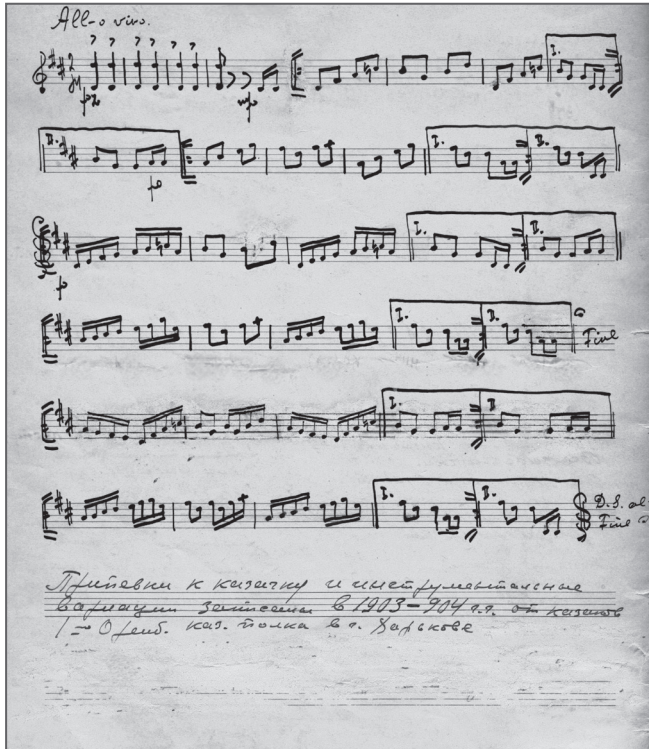 All-o vivo.
I.
II.
I.
II.
I.
II.
I.
II.
Fine
I.
II.
I.
II.
D.S. al
Fine
Припевки к казачку и инструментальные
вариации записаны в 1903–904 г.г. от казаков
1 = Оренб. каз. полка в г. Харькове